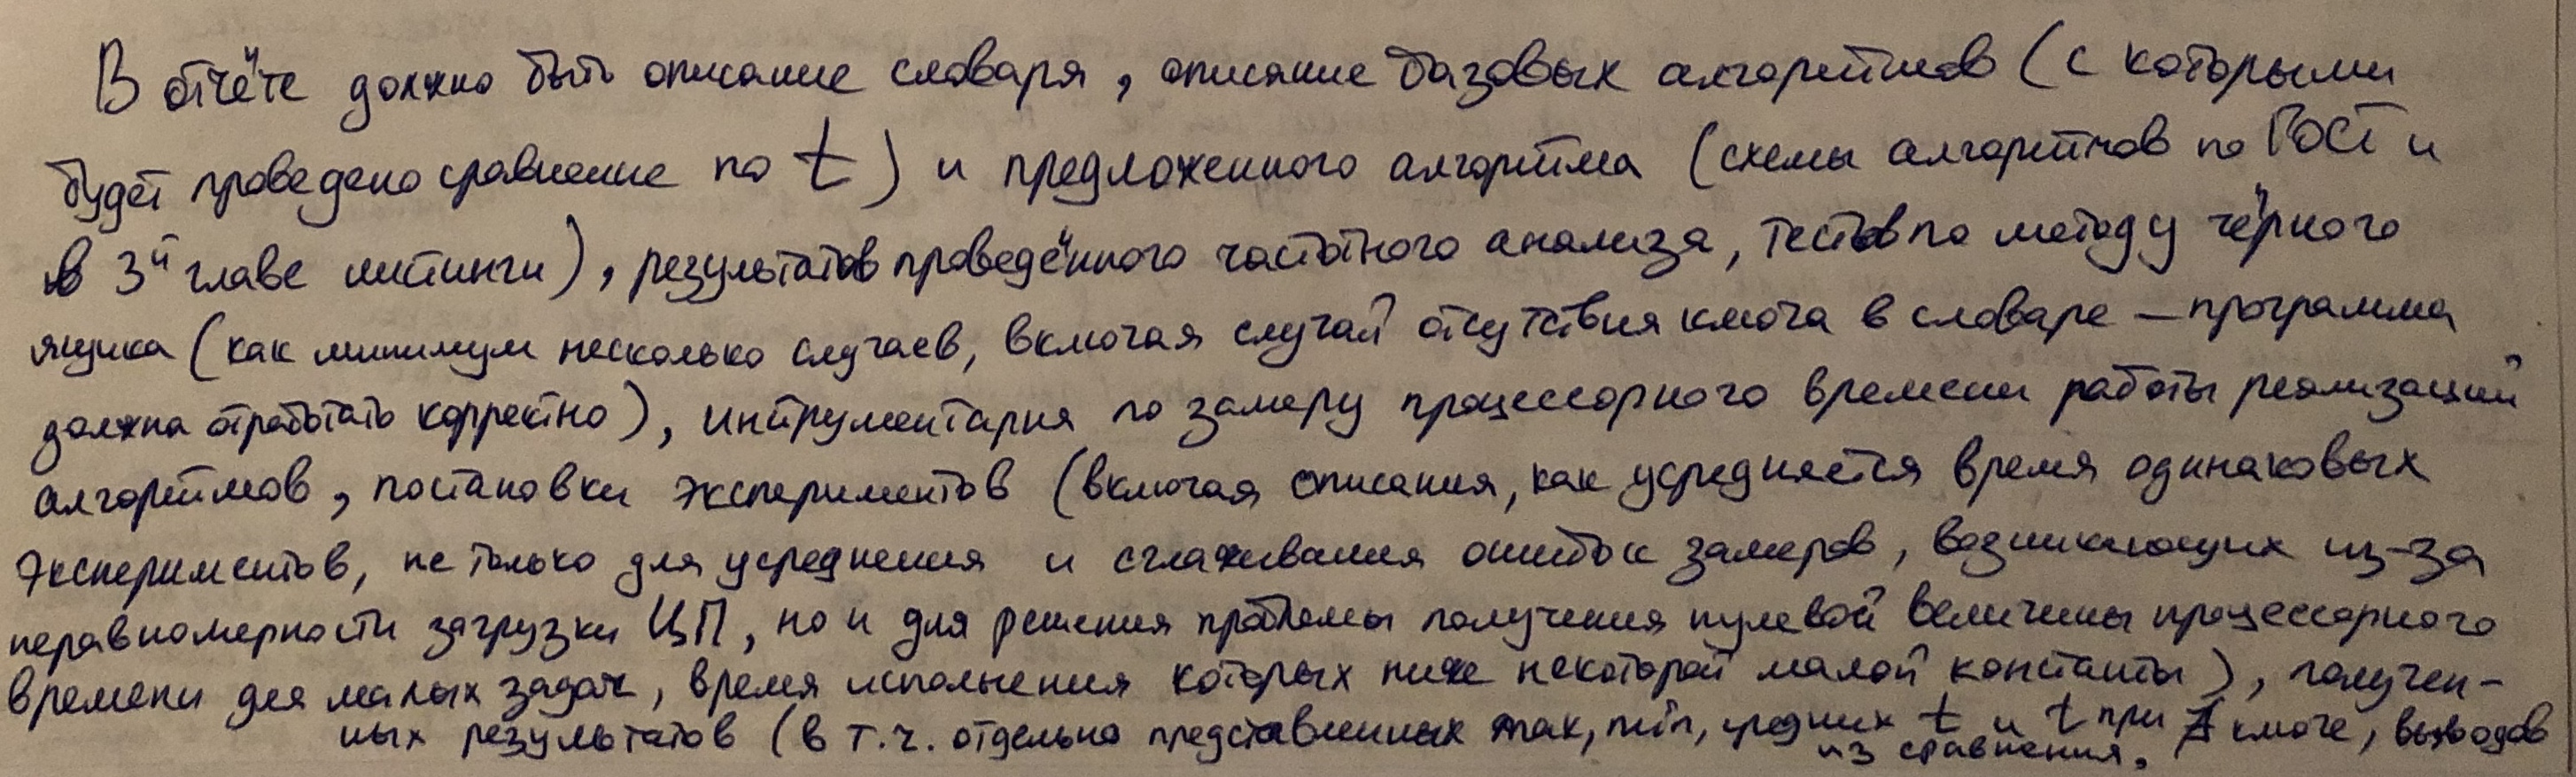 В отчёте должно быть описание словаря, описание базовых алгоритмов (с которыми
будет проведено сравнение по t) и предложенного алгоритма (схемы алгоритмов по ГОСТ и
в 3й главе листинги), результатов проведённого частотного анализа, тестов по методу чёрного
ящика (как минимум несколько случаев, включая случай отсутствия ключа в словаре – программа
должна отработать корректно), интрументария по замеру процессорного времени работы реализаций
алгоритмов, постановки экспериментов (включая описания, как усредняется время одинаковых
экспериментов, не только для усреднения и сглаживания ошибок замеров, возникающих из-за
неравномерности загрузки ЦП, но и для решения проблемы получения нулевой величины процессорного
времени для малых задач, время исполнения которых ниже некоторой малой константы), получен-
ных результатов (в т.ч. отдельно представленных max, min, средних t и t при ∄ ключе, выводов
из сравнения.